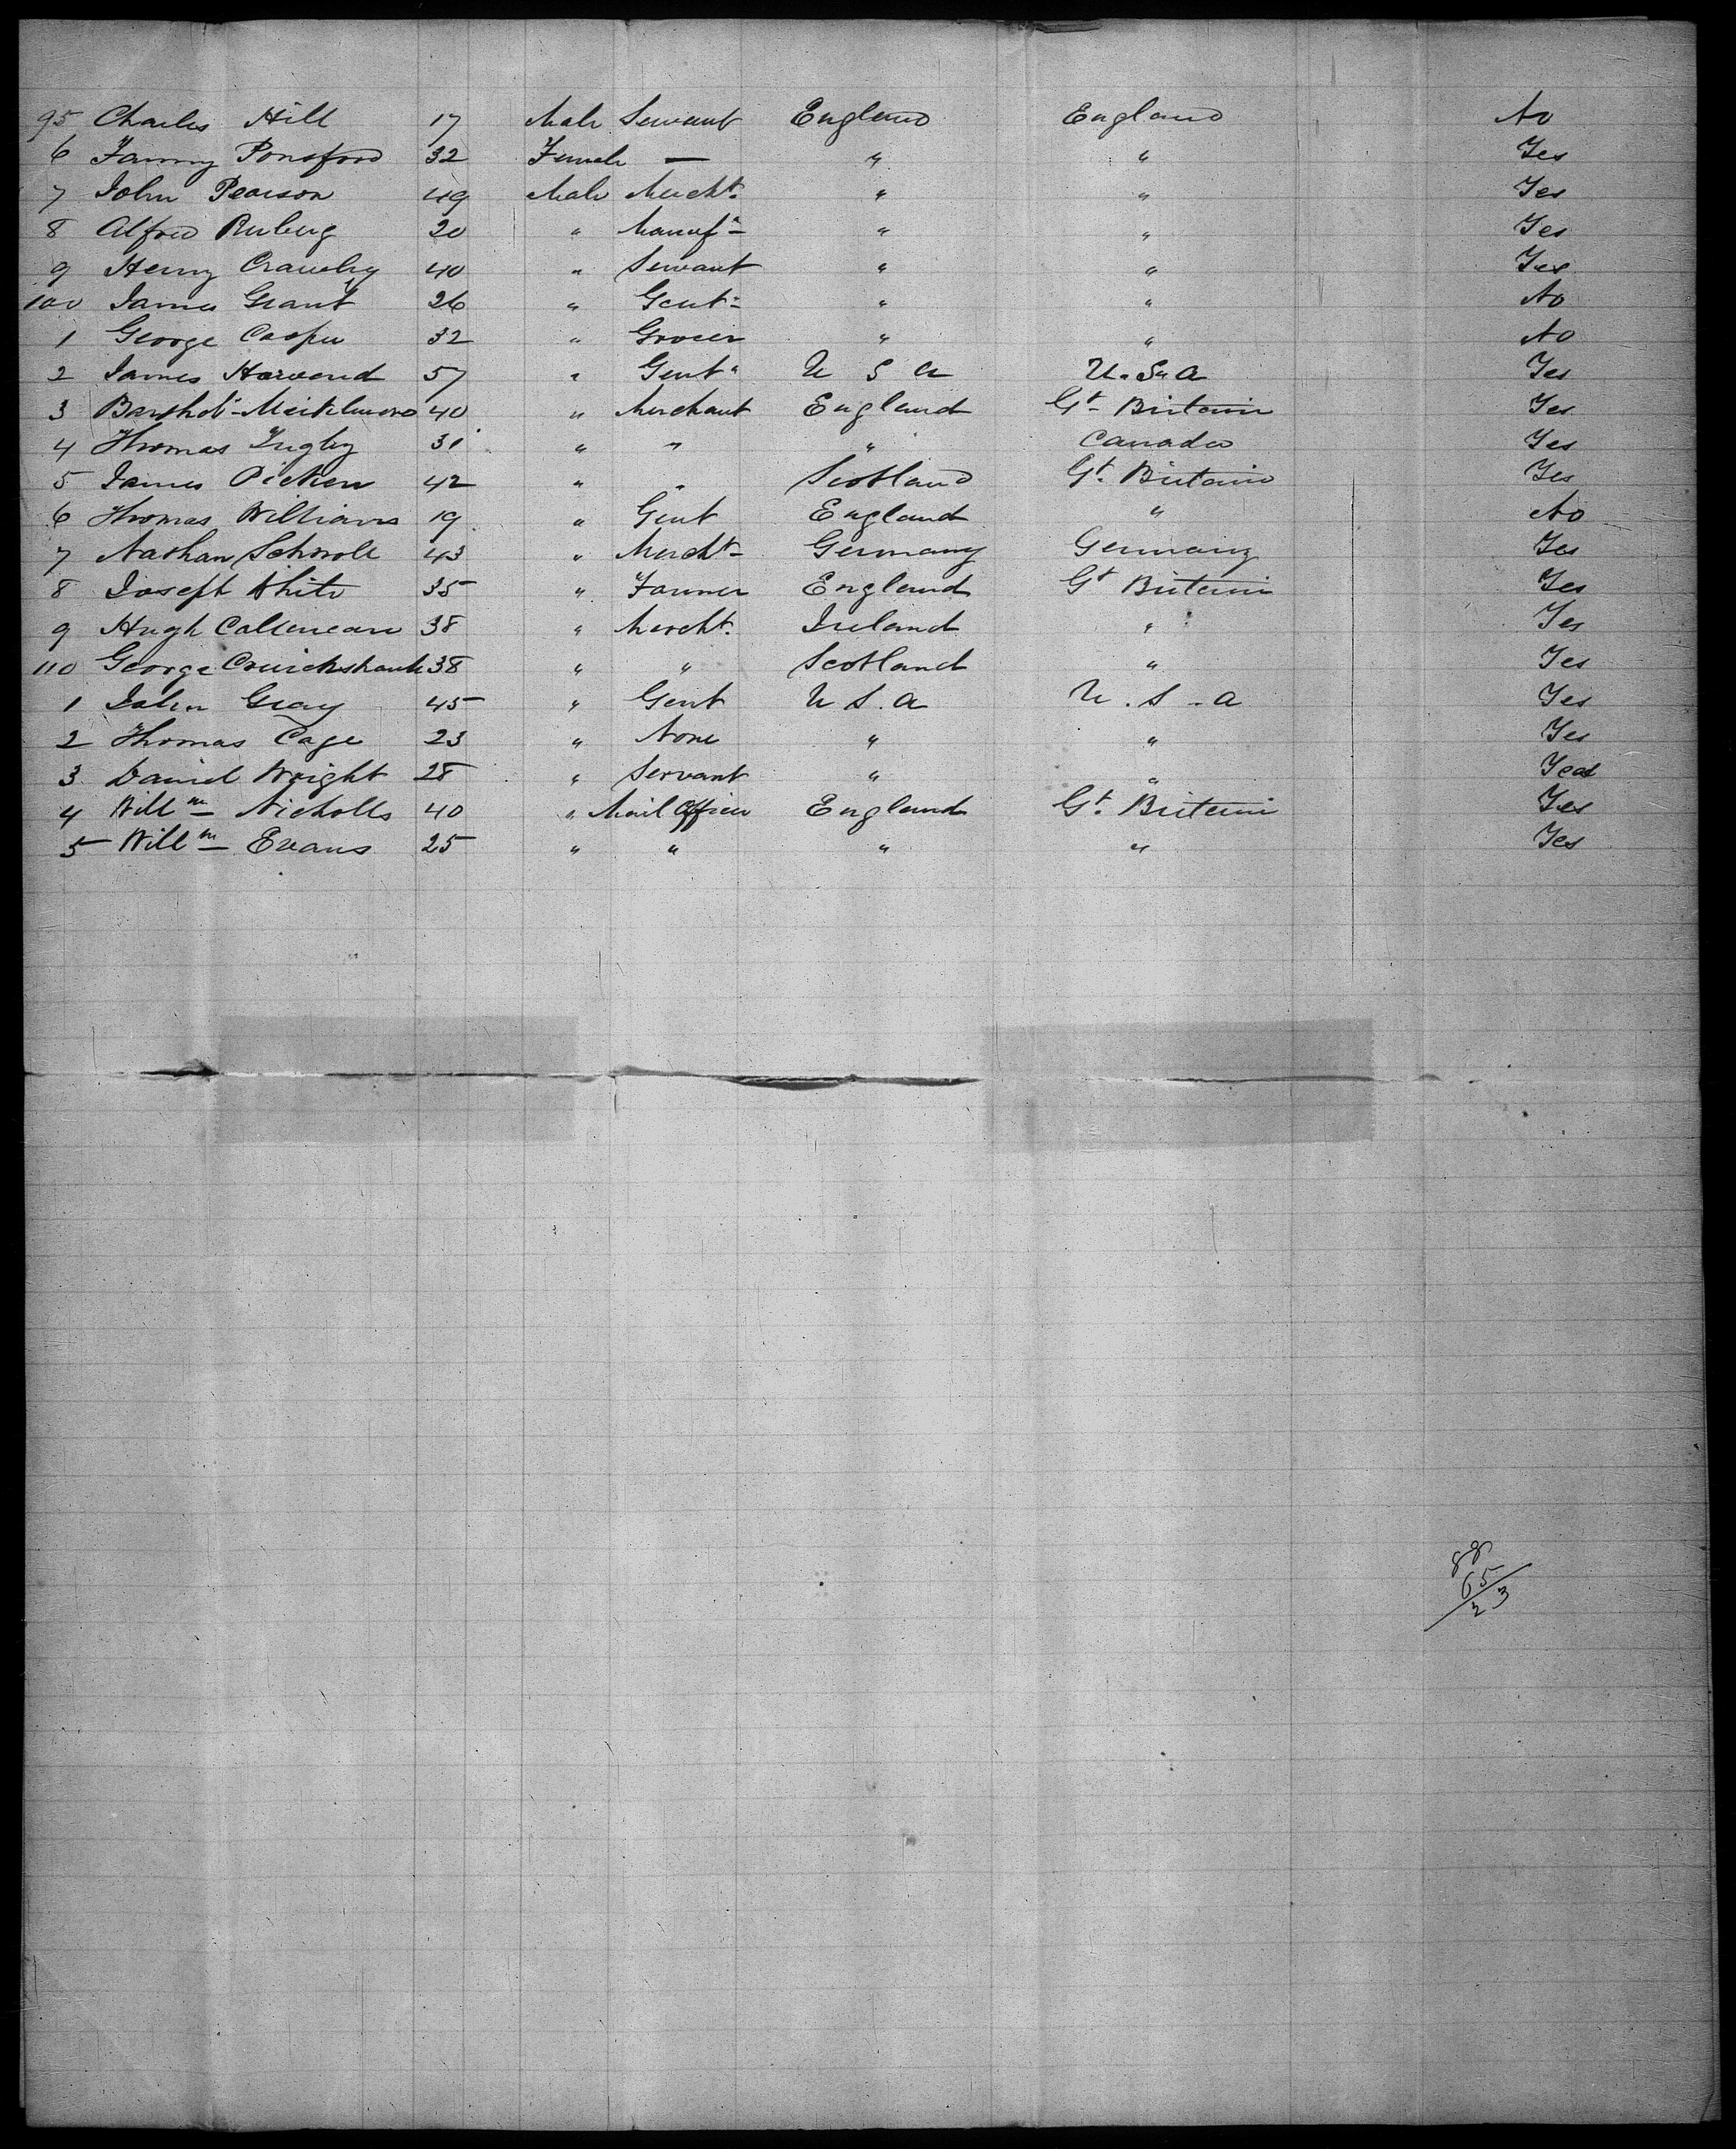 95 Charles Hill 17 Male Servant England England No
6 Fanny Ponsford 32 Female — " " Yes
7 John Pearson 49 Male Mercht. " " Yes
8 Alfred 20 " Manufr " " Yes
9 Henry Crawley 40 " Servant " " Yes
100 James Grant 26 " Gent " " No
1 George Casper 32 " Grocer " " No
2 James Harwood 57 " Gent " U S A U.S.A Yes
3 40 " Merchant England Gt Britain Yes
4 Thomas Ingley 31 " " " Canada Yes
5 James Picken 42 " " Scotland Gt. Britain Yes
6 Thomas Williams 19 " Gent England " No
7 Nathan 43 " Mercht Germany Germany Yes
8 Joseph White 35 " Farmer England Gt Britain Yes
9 Hugh 38 " Mercht. Ireland " Yes
110 George Cruickshank 38 " " Scotland " Yes
1 John Gray 45 " Gent U S. A U. S. A Yes
2 Thomas Cage 23 " None " " Yes
3 David Wright 28 " Servant " " Yes
4 Willm Nicholls 40 " Mail Officer England Gt. Britain Yes
5 Willm Evans 25 " " " " Yes
88
65
23